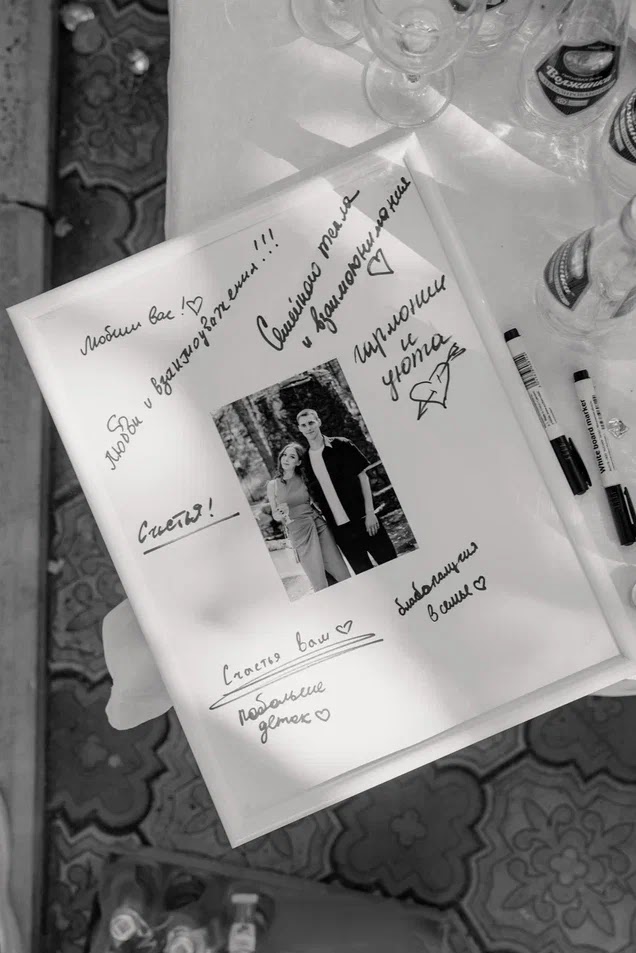 Любим вас!♡
Любви и взаимоуважения!!!
Семейного тепла
и взаимопонимания
♡
гармонии
и
уюта
Счастья!
благополучия
в семье ♡
Счастья вам ♡
побольше
деток ♡
Волжанка
White board marker